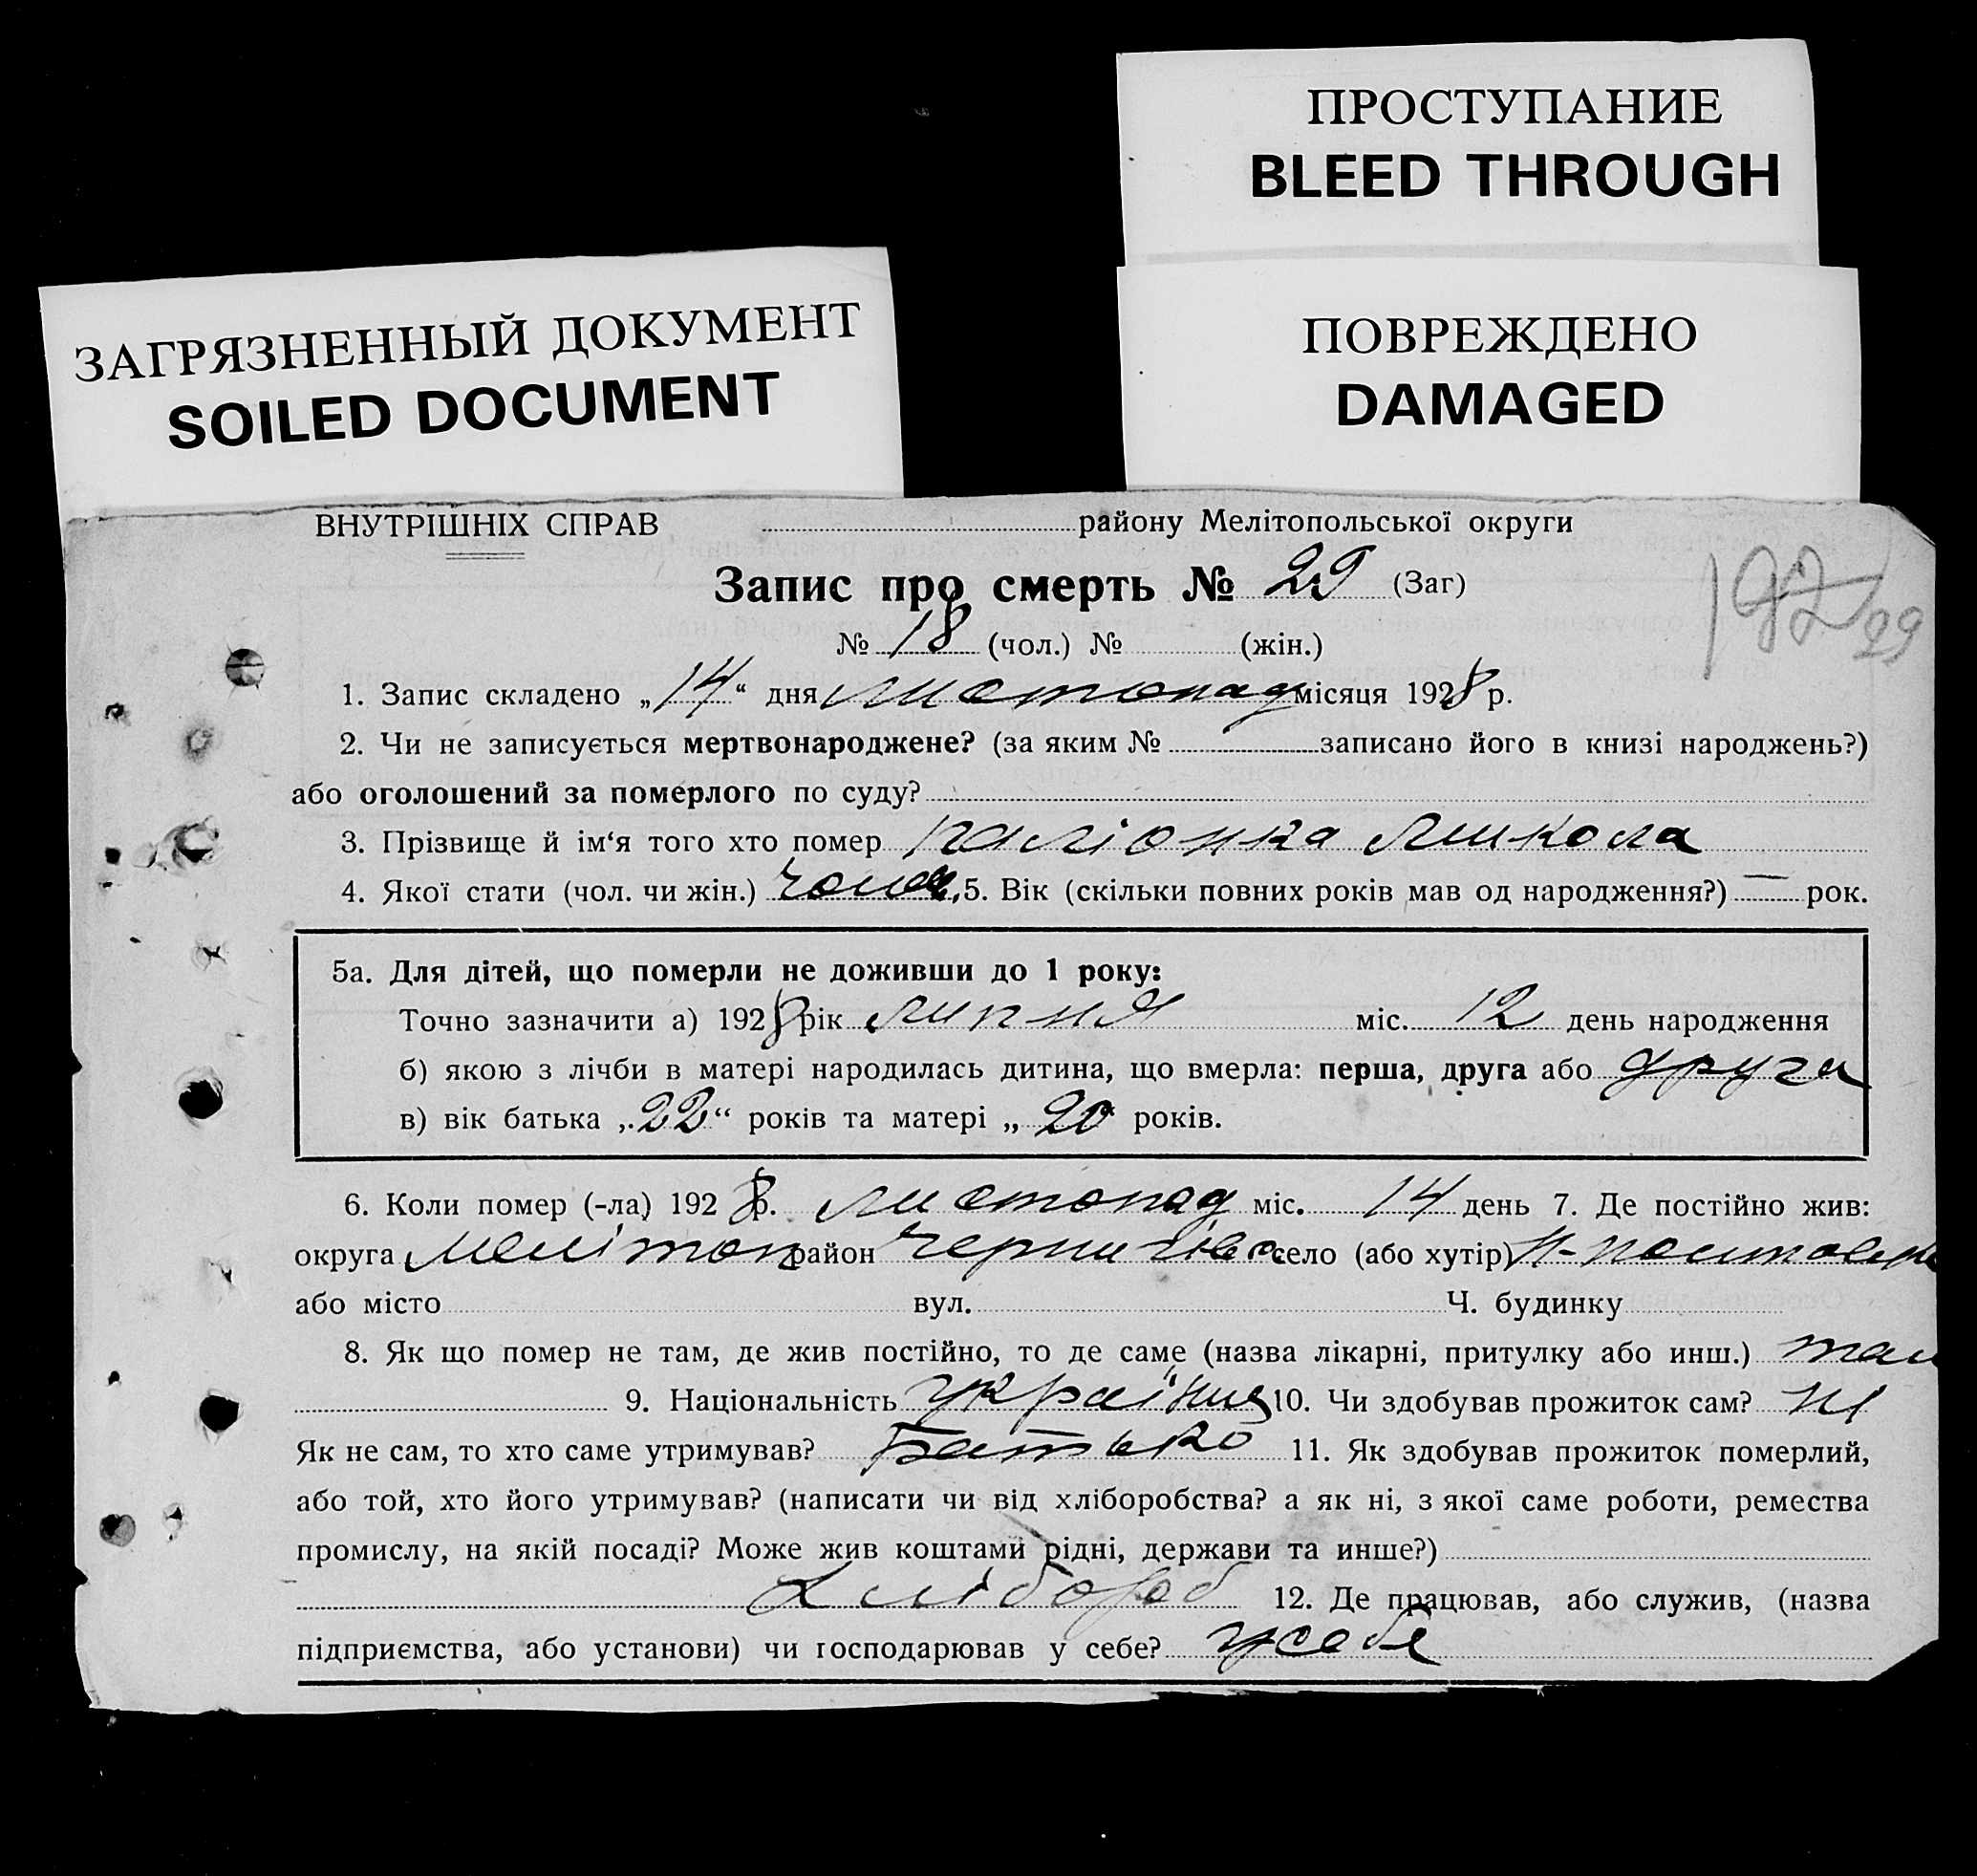 ПРОСТУПАНИЕ
BLEED THROUGH
ЗАГРЯЗНЕННЫЙ ДОКУМЕНТ
SOILED DOCUMENT
ПОВРЕЖДЕНО
DAMAGED
ВНУТРІШНІХ СПРАВ району Мелітопольської округи
Запис про смерть № 29 (Заг)
197 29
№ 18 (чол.) № (жін.)
1. Запис складено „14“ дня листопад місяця 1928 р.
2. Чи не записується мертвонароджене? (за яким № записано його в книзі народжень?)
або оголошений за померлого по суду?
3. Прізвище й ім‘я того хто помер Микола
4. Якої стати (чол. чи жін.) 5. Вік (скільки повних років мав од народження?) — рок.
5а. Для дітей, що померли не доживши до 1 року:
Точно зазначити а) 1928 рік липня міс. 12 день народження
б) якою з лічби в матері народилась дитина, що вмерла: перша, друга або друга
в) вік батька „22“ років та матері „20 років.
6. Коли помер (-ла) 1928 р. листопад міс. 14 день 7. Де постійно жив:
округа Мелітоп район Чернигівс село (або хутір)
або місто вул. Ч. будинку
8. Як що помер не там, де жив постійно, то де саме (назва лікарні, притулку або инш.) там
9. Національність українц 10. Чи здобував прожиток сам? ні
Як не сам, то хто саме утримував? Батько 11. Як здобував прожиток померлий,
або той, хто його утримував? (написати чи від хліборобства? а як ні, з якої саме роботи, ремества
промислу, на якій посаді? Може жив коштами рідні, держави та инше?)
Хлібороб 12. Де працював, або служив, (назва
підприємства, або установи) чи господарював у себе? у себе